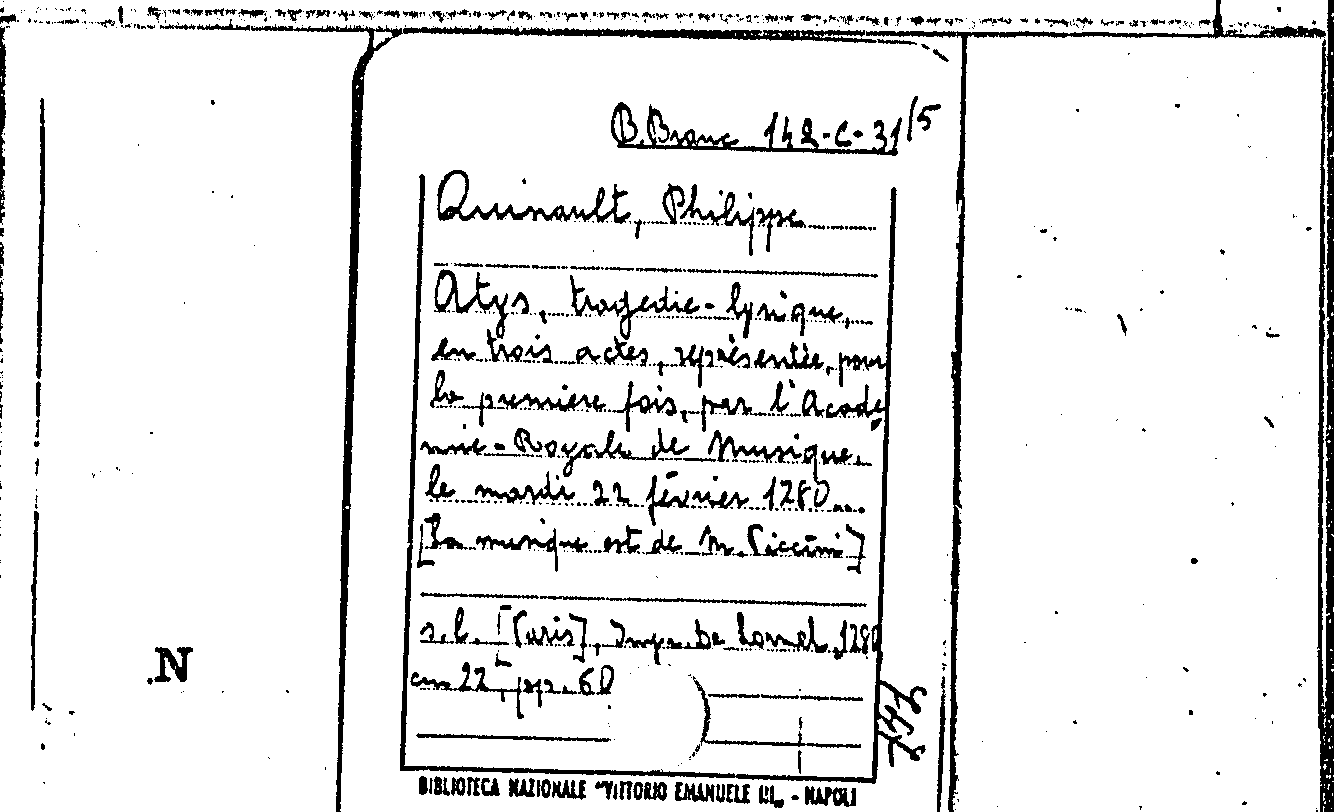 B. Branc 142-C-31/5
Quinault, Philippe
Atys, tragedie-lyrique,
en trois actes, représentée, pour
la premiere fois, par l'Acadé
mie-Royale de Musique,
le mardi 22 février 1780...
[La musique est de M. Piccini]
s.l. [Paris], Imp. De Lormel, 1780
cm 22, pp. 60
N
BIBLIOTECA NAZIONALE "VITTORIO EMANUELE III„ - NAPOLI